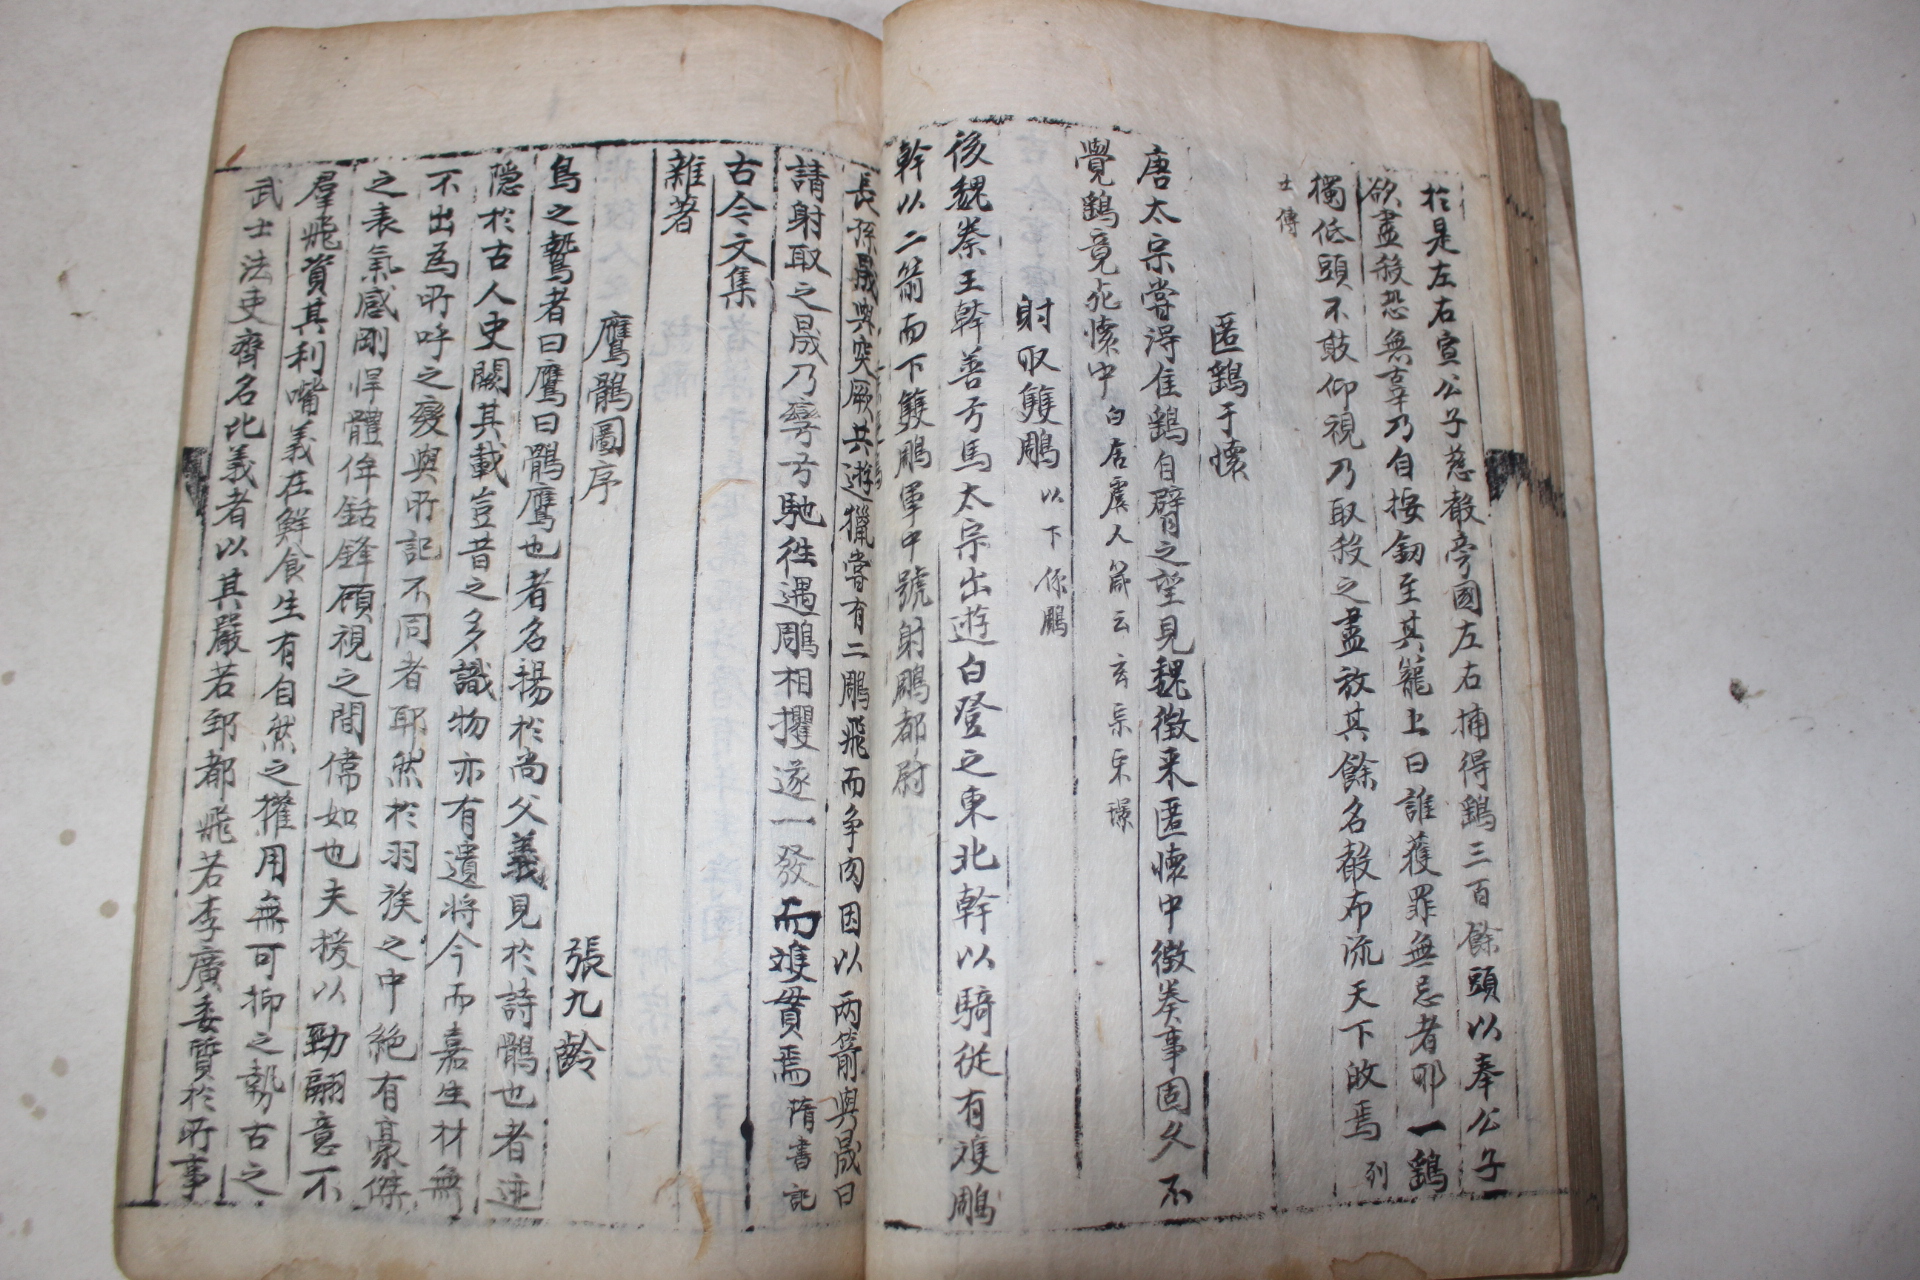 於是左右宣公子慈聲旁國左右捕得鷂三百餘頭以奉公子
欲盡殺恐無辜乃自按劒至其籠上曰誰獲罪無忌者耶一鷂
獨低頭不敢仰視乃取殺之盡放其餘名聲布流天下故焉 列
士傳
匿鷂于懷
唐太宗嘗得佳鷂自臂之望見魏徵来匿懷中徵奏事固久不
覺鷂竟死懷中 白居虞人箴云玄宗宋璟
射取雙鵰 以下係鵰
後魏秦王幹善弓馬太宗出遊白登之東北幹以騎從有雙鵰
幹以二箭而下雙鵰軍中號射鵰都尉
長孫晟與突厥共遊獵嘗有二鵰飛而争肉因以两箭與晟曰
請射取之晟乃彎弓馳徃遇鵰相攫遂一發而雙貫焉 隋書記
古今文集
雜著
鷹鶻圖序
張九齡
鳥之鷙者曰鷹曰鶻鷹也者名揚於尚父義見於詩鶻也者迹
隱於古人史闕其載豈昔之多識物亦有遺将今而嘉生材無
不出為所呼之變與所記不同者耶然於羽族之中絶有豪傑
之表氣感剛悍體侔銛鋒顧視之間儒如也夫援以勁翮意不
羣飛資其利嘴義在鮮食生有自然之權用無可抑之勢古之
武士法吏齊名比義者以其嚴若郅都飛若李廣委質於所事